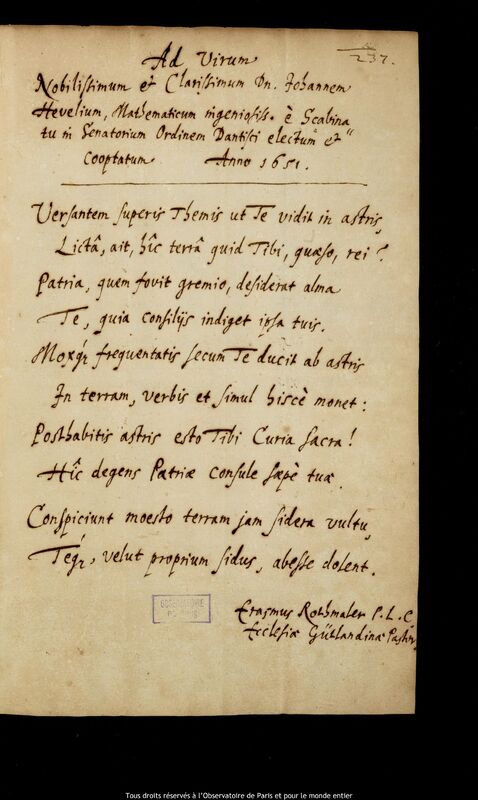 237.
Ad Virum
Nobilissimum et Clarissimum Dn. Johannem
Hevelium, Mathematicum ingeniosiss. è Scabina
tu in Senatorium Ordinem Dantisci electum et
cooptatum Anno 1651.
Versantem superis Themis ut Te vidit in astris,
Lictâ, ait, hîc terrâ quid Tibi, quæso, rei?
Patria, quem fovit gremio, desiderat alma
Te, quia consilijs indiget ipsa tuis.
Moxq; frequentatis secum Te ducit ab astris
In terram, verbis et simul hiscè monet:
Posthabitis astris esto Tibi Curia sacra!
Hîc degens Patriæ consule sæpè tuæ.
Conspiciunt moesto terram jam sidera vultu,
Teq;, velut proprium sidus, abesse dolent.
Erasmus Rothmaler P.L.C.
Ecclesiæ Gütlandinæ Pastor
OBSERVATOIRE
DE PARIS
Tous droits réservés à l'Observatoire de Paris et pour le monde entier